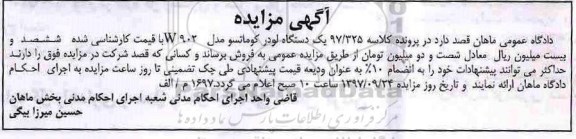 آگهی مزایده
دادگاه عمومی ماهان قصد دارد در پرونده کلاسه ۹۷/۳۲۵ یک دستگاه لودر کوماتسو مدل W۹۰۲ با قیمت کارشناسی شده ششصد و
بیست میلیون ریال معادل شصت و دو میلیون تومان از طریق مزایده عمومی به فروش برساند و کسانی که قصد شرکت در مزایده فوق را دارند
حداکثر می توانند پیشنهادات خود را به انضمام ۱۰٪ به عنوان ودیعه قیمت پیشنهادی طی چک تضمینی تا روز ساعت مزایده به اجرای احکام
دادگاه ماهان ارائه نمایند و تاریخ روز مزایده ۱۳۹۷/۰۹/۲۴ ساعت ۱۰ صبح اعلام می گردد. ۱۶۹۷ م الف
قاضی واحد اجرای احکام مدنی شعبه اجرای احکام مدنی بخش ماهان
حسین میرزا بیگی